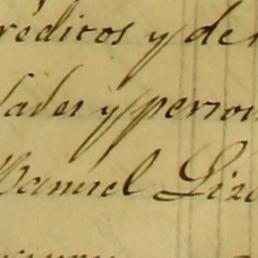 réditos y de
dades y person
Manuel Liza